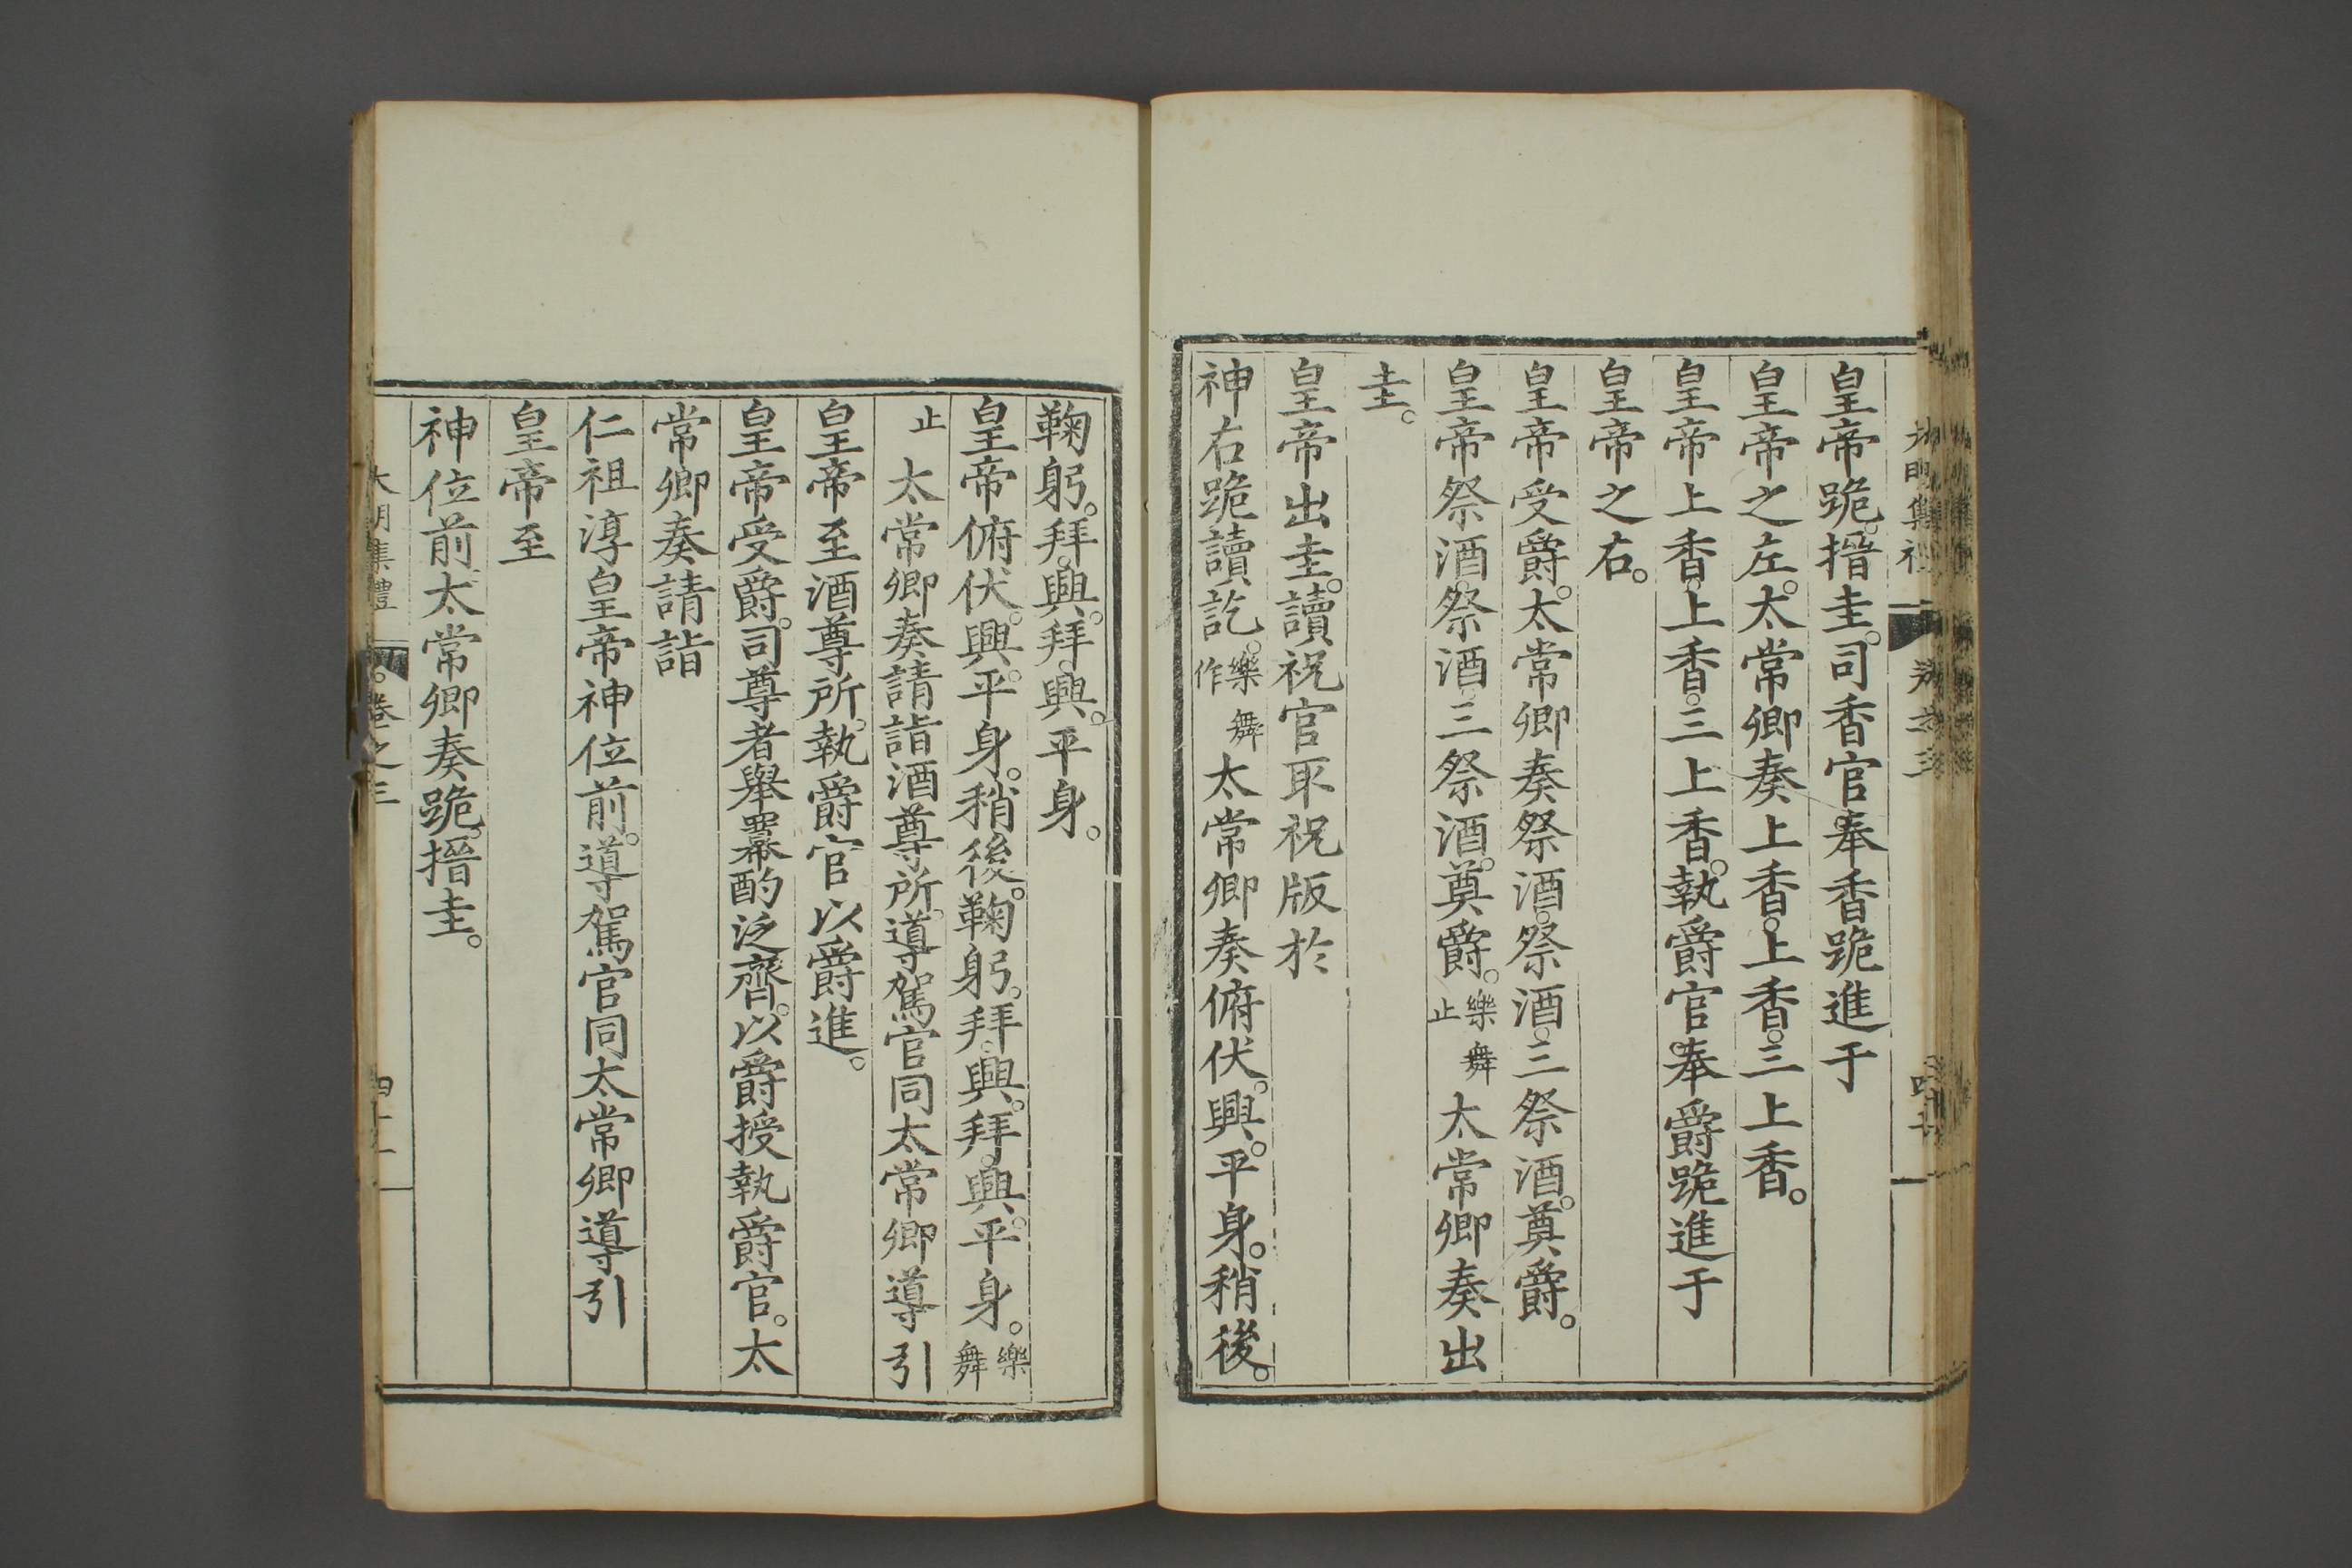 皇帝跪。搢圭。司香官。奉香跪進于
皇帝之左。太常卿奏上香。上香。三上香。
皇帝上香。上香。三上香。執爵官。奉爵跪進于
皇帝之右。
皇帝受爵。太常卿奏祭酒。祭酒。三祭酒。奠爵。
皇帝祭酒。祭酒。三祭酒。奠爵。樂舞止太常卿奏出
圭。
皇帝出圭。讀祝官取祝版於
神右跪讀訖。樂舞作太常卿奏俯伏。興。平身。稍後。
鞠躬。拜。興。拜。興。平身。
皇帝俯伏。興。平身。稍後。鞠躬。拜。興。拜。興。平身。樂舞
止太常卿奏請詣酒尊所。導駕官同太常卿導引
皇帝至酒尊所。執爵官以爵進。
皇帝受爵。司尊者舉冪酌泛齊。以爵授執爵官。太
常卿奏請詣
仁祖淳皇帝神位前。導駕官同太常卿導引
皇帝至
神位前太常卿奏跪。搢圭。
大明集禮 卷之三